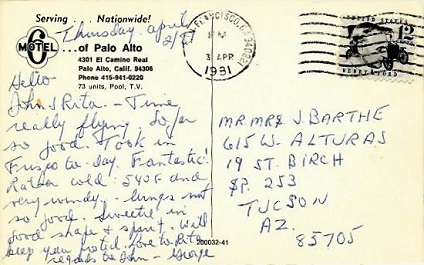 Serving . . Nationwide!
6
MOTEL
...of Palo Alto
4301 El Camino Real
Palo Alto, Calif. 94306
Phone 415-941-0220
73 units, Pool, T.V.
Thursday april
2/81
Hello
John & Rita - Time
really flying. So far
so good. Took in
Frisco to-day. Fantastic!
Rather cold: 540F and
very windy - lungs not
so good. Sweetie in
good shape & spirit. Will
keep you posted. Love to Rita
regards to John - George
200032-41
SAN FRANCISCO, CA
PM
3 APR
1981
UNITED STATES
12
HENRY FORD
MR MRS J. BARTHE
615 W. ALTURAS
19 ST. BIRCH
SP. 253
TUCSON
AZ.
85705